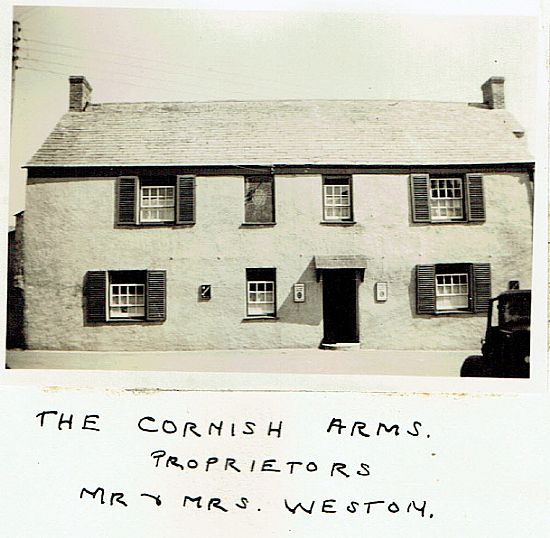 THE CORNISH ARMS.
PROPRIETORS
MR & MRS. WESTON.